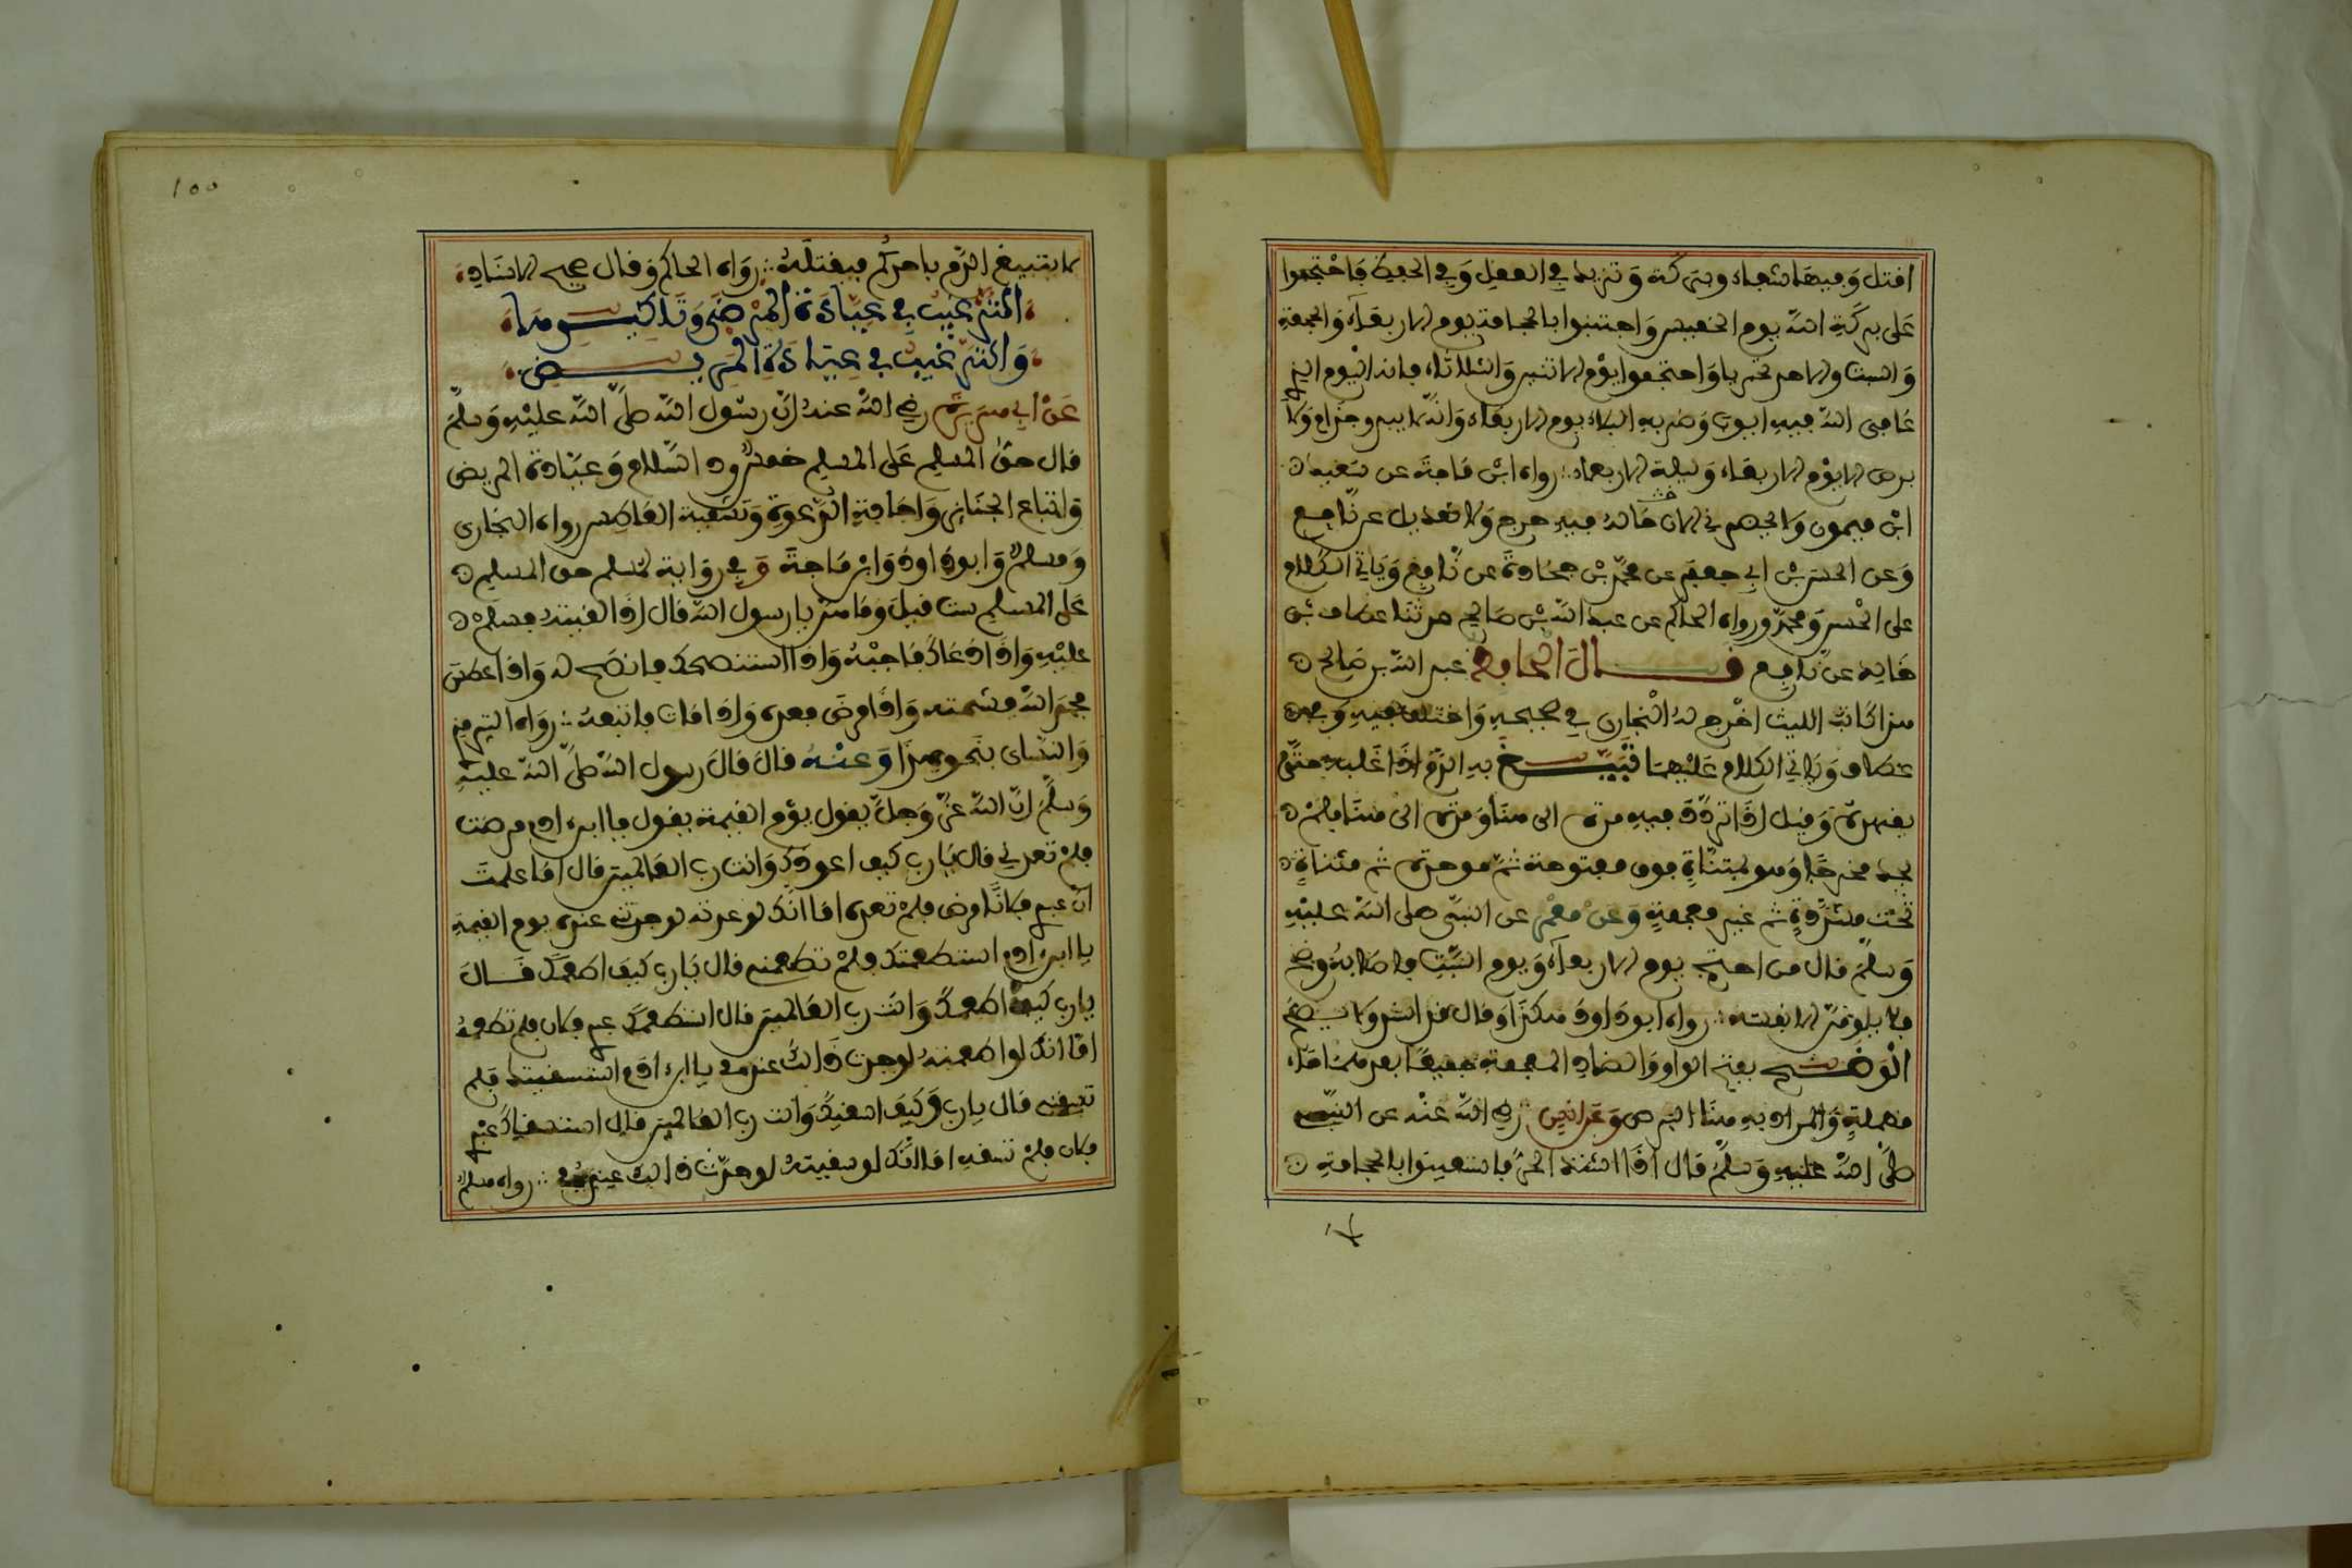 امثل وفيها شفاء وبركة وتزيد في العقل وفي الحفظ فاحتجموا
على بركة الله يوم الخميس واجتنبوا الحجامة يوم الاربعاء والجمعة
والسبت والاحد تحريا واحتجموا يوم الاثنين والثلاثاء فانه اليوم الذي
عافى الله فيه ايوب وضربه البلاء يوم الاربعاء وانه لا يبدو جذام ولا
برص الا يوم الاربعاء وليلة الاربعاء رواه ابن ماجة عن سعيد
ابن ميمون ولا يحضرني الان فيه جرح ولا تعديل عن نافع
وعن الحسن بن ابي جعفر عن محمد بن جحادة عن نافع وياتي الكلام
على الحسن ومحمد ورواه الحاكم عن عبد الله بن صالح حدثنا عطاف بن
خالد عن نافع قال الحافظ عبد الله بن صالح
هذا كاتب الليث اخرج له البخاري في صحيحه واختلف فيه وفي
عطاف وياتي الكلام عليهما تبيغ به الدم اذا غلبه حتى
يقهره وقيل اذا تردد فيه مرة الى هنا ومرة الى هنا فلم
يجد مخرجا وهو بمثناة فوق مفتوحة ثم موحدة ثم مثناة
تحت مشددة ثم غين معجمة وعن معمر عن النبي صلى الله عليه
وسلم قال من احتجم يوم الاربعاء ويوم السبت فاصابه وضح
فلا يلومن الا نفسه رواه ابوداود هكذا وقال قد اسند ولا يصح
الوضح بفتح الواو والضاد المعجمة جميعا بعدهما حاء
مهملة والمراد به هنا البرص وعن انس رضي الله عنه عن النبي
صلى الله عليه وسلم قال اذا اشتد الحر فاستعينوا بالحجامة
لا
١٥٥
لا يتبيغ الدم باحدكم فيقتله رواه الحاكم وقال صحيح الاسناد
الترغيب في عيادة المرضى وتاكيدها
والترغيب في عيادة المريض
عن ابي هريرة رضي الله عنه ان رسول الله صلى الله عليه وسلم
قال حق المسلم على المسلم خمس رد السلام وعيادة المريض
واتباع الجنائز واجابة الدعوة وتشميت العاطس رواه البخاري
ومسلم وابوداود وابن ماجة وفي رواية لمسلم حق المسلم
على المسلم ست قيل وما هن يا رسول الله قال اذا لقيته فسلم
عليه واذا دعاك فاجبه واذا استنصحك فانصح له واذا عطس
فحمد الله فشمته واذا مرض فعده واذا مات فاتبعه رواه الترمذي
والنسائي بنحو هذا وعنه قال قال رسول الله صلى الله عليه
وسلم ان الله عز وجل يقول يوم القيمة يقول يا ابن ادم مرضت
فلم تعدني قال يارب كيف اعودك وانت رب العالمين قال اما علمت
ان عبدي فلانا مرض فلم تعده اما انك لو عدته لوجدتني عنده يوم القيمة
يا ابن ادم استطعمتك فلم تطعمني قال يارب كيف اطعمك قال
يارب كيف اطعمك وانت رب العالمين قال استطعمك عبدي فلان فلم تطعمه
اما انك لو اطعمته لوجدت ذالك عندي يا ابن ادم استسقيتك فلم
تسقني قال يارب وكيف اسقيك وانت رب العالمين قال استسقاك عبدي
فلان فلم تسقه اما انك لو سقيته لوجدت ذالك عندي رواه مسلم